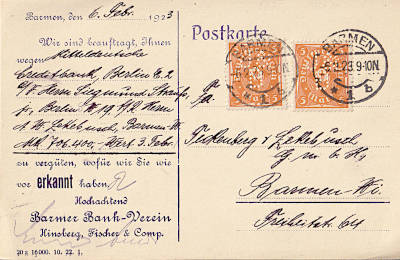 Barmen, den 6. Febr. 1923
Wir sind beauftragt, Ihnen
wegen Mitteldeutsche
Creditbank, Berlin C. 2
Herrn Siegmund Strauss
jr. Berlin W. 19, Herrn
A. W. Lekebusch, Barmen W.
Mk 706.400,- Wert 3. Febr.
zu vergüten, wofür wir Sie wie
vor erkannt haben,
Hochachtend
Barmer Bank-Verein
Hinsberg, Fischer & Comp.
20 x 16000. 10. 22. 1.
Postkarte
BARMEN
6.2.23 9-10N.
BARMEN
6.2.23 9-10N.
Fa.
Tecklenberg & Lekebusch
G. m. b. H.
Barmen-Wi
Freiheitstr. 64